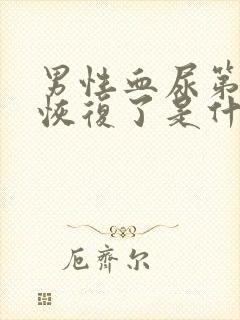 男性血尿第
恢復了是什
厄齊尔